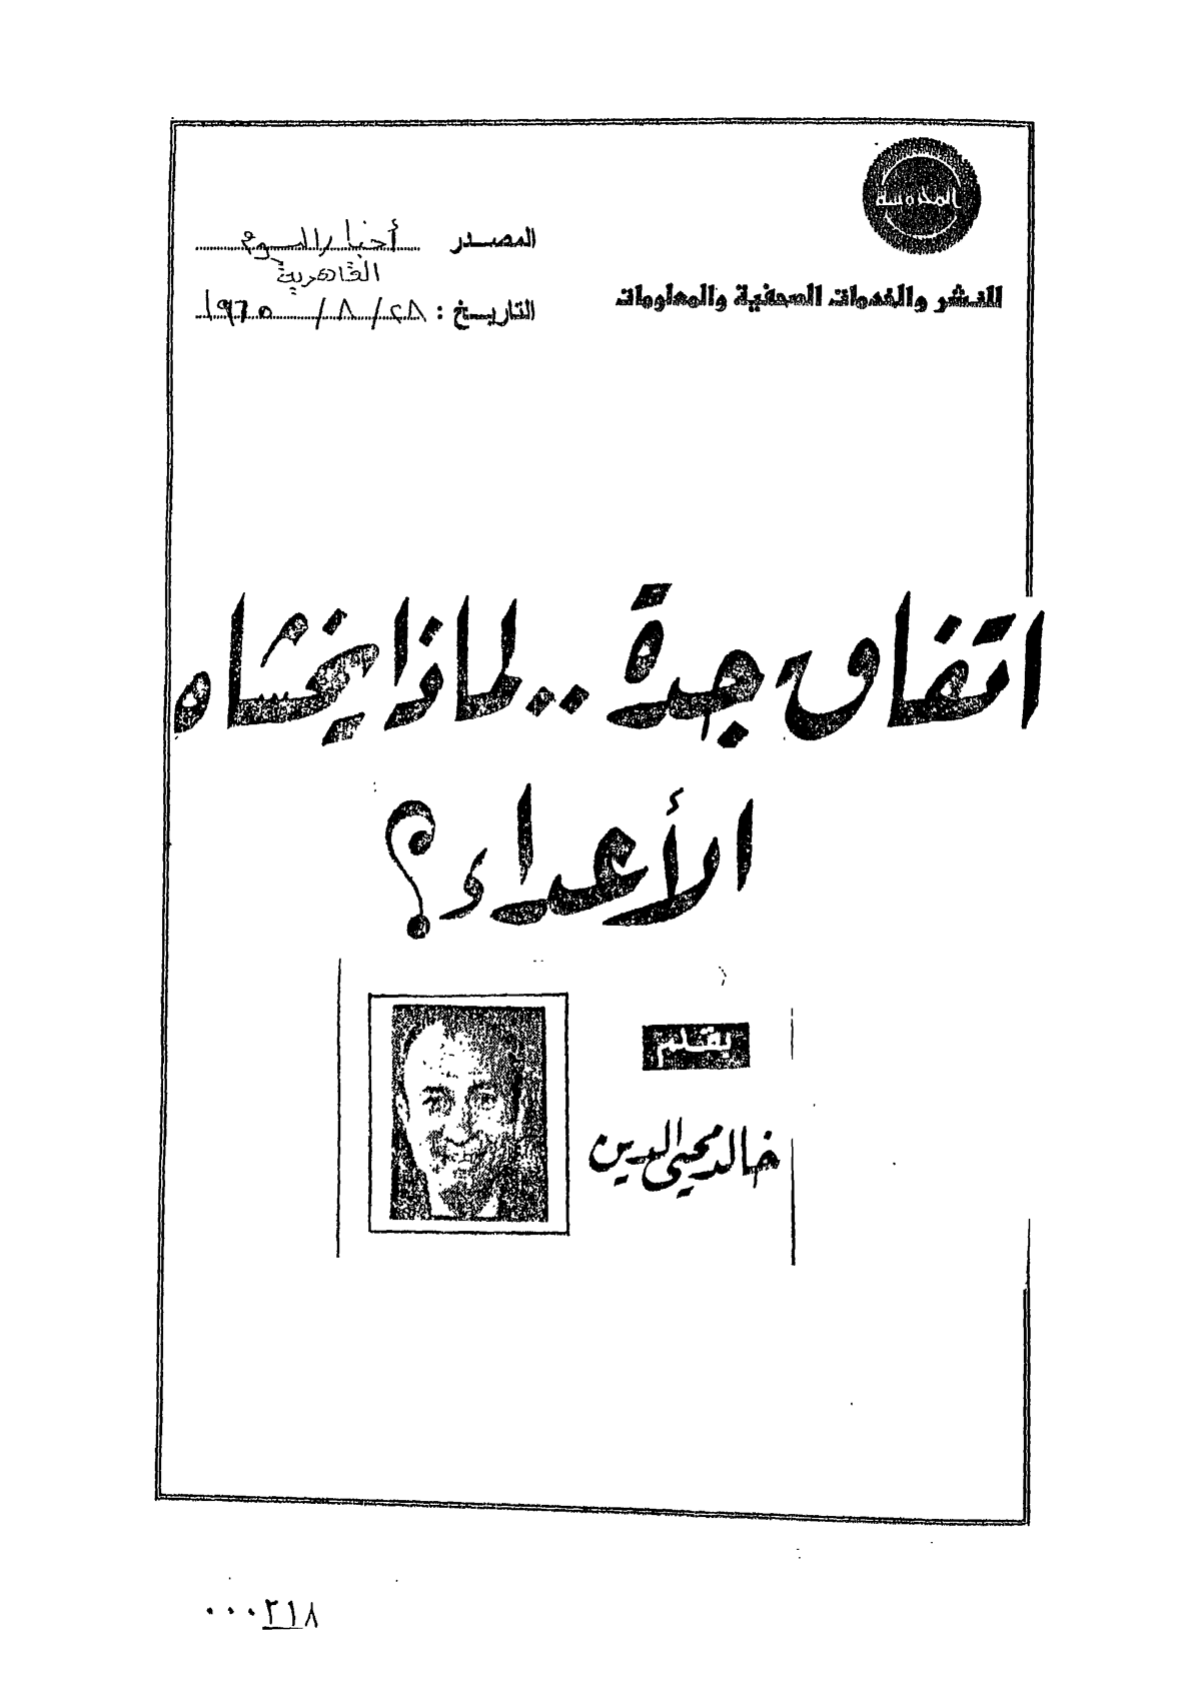 المحروسة
للنشر والخدمات الصحفية والمعلومات
المصدر أخبار اليوم
القاهرية
التاريخ : ٢٨ / ٨ / ١٩٦٥
اتفاق جدة .. لماذا يخشاه
الأعداء ؟
بقلم
خالد محيى الدين
٠٠٠٢١٨